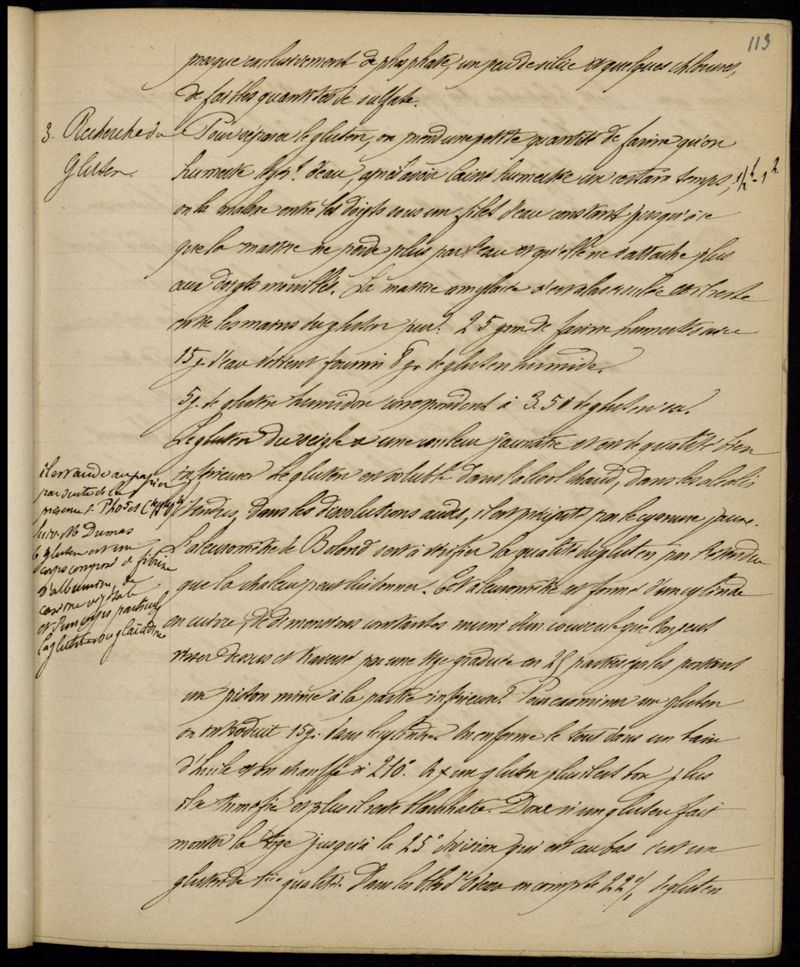 113
presque exclusivement de phosphate, un peu de silice et quelques chlorures,
de faibles quantités de sulfate.
3. Recherche du
Gluten.
Pour séparer le gluten, on prend une petite quantité de farine qu'on
humecte d'eau après avoir laissé humecter un certain temps, 1/2 - 1 h
on la malaxe entre les doigts sous un filet d'eau constant jusqu'à ce
que la matière ne perde plus par l'eau et qu'elle ne s'attache plus
aux doigts mouillés. La matière amylacée s'en est alors et il reste
entre les mains du gluten pur. 25 gm de farine humectés avec
15 g. d'eau doivent fournir 8 g. de gluten humide.
5 g. de gluten humide correspondent à 3.50 de gluten sec.
Le gluten du seigle a une couleur jaunâtre et est de qualité bien
inférieure. Le gluten est soluble dans l'alcool chaud, dans les alcalis
étendus, dans les dissolutions acides, il est précipité par le cyanure jaune.
il est acide au papier
par suite de la
présence de
Suiv. Mr Dumas
le gluten est un
corps composé de fibrine
d'albumine, de
caséine végétale
et d'un corps particulier
la glutine ou gliadine
L'aleuromètre de Boland sert à vérifier la qualité du gluten par l'étendue
que la chaleur peut lui donner. Cet aleuromètre est formé d'un cylindre
en cuivre, de dimensions constantes muni d'un couvercle que l'on peut
visser dessus et traversé par une tige graduée en 25 parties égales portant
un piston même à la partie inférieure. Pour examiner un gluten
on introduit 15 g. dans le cylindre. On enferme le tout dans un bain
d'huile et on chauffe à 210°. un gluten plus il est bon plus
il se tuméfie et plus il reste blanchâtre. Donc si un gluten fait
monter la tige jusqu'à la 25e division qui est au bas c'est un
gluten de 1ère qualité. Dans les blés d'Odessa on compte 22% de gluten